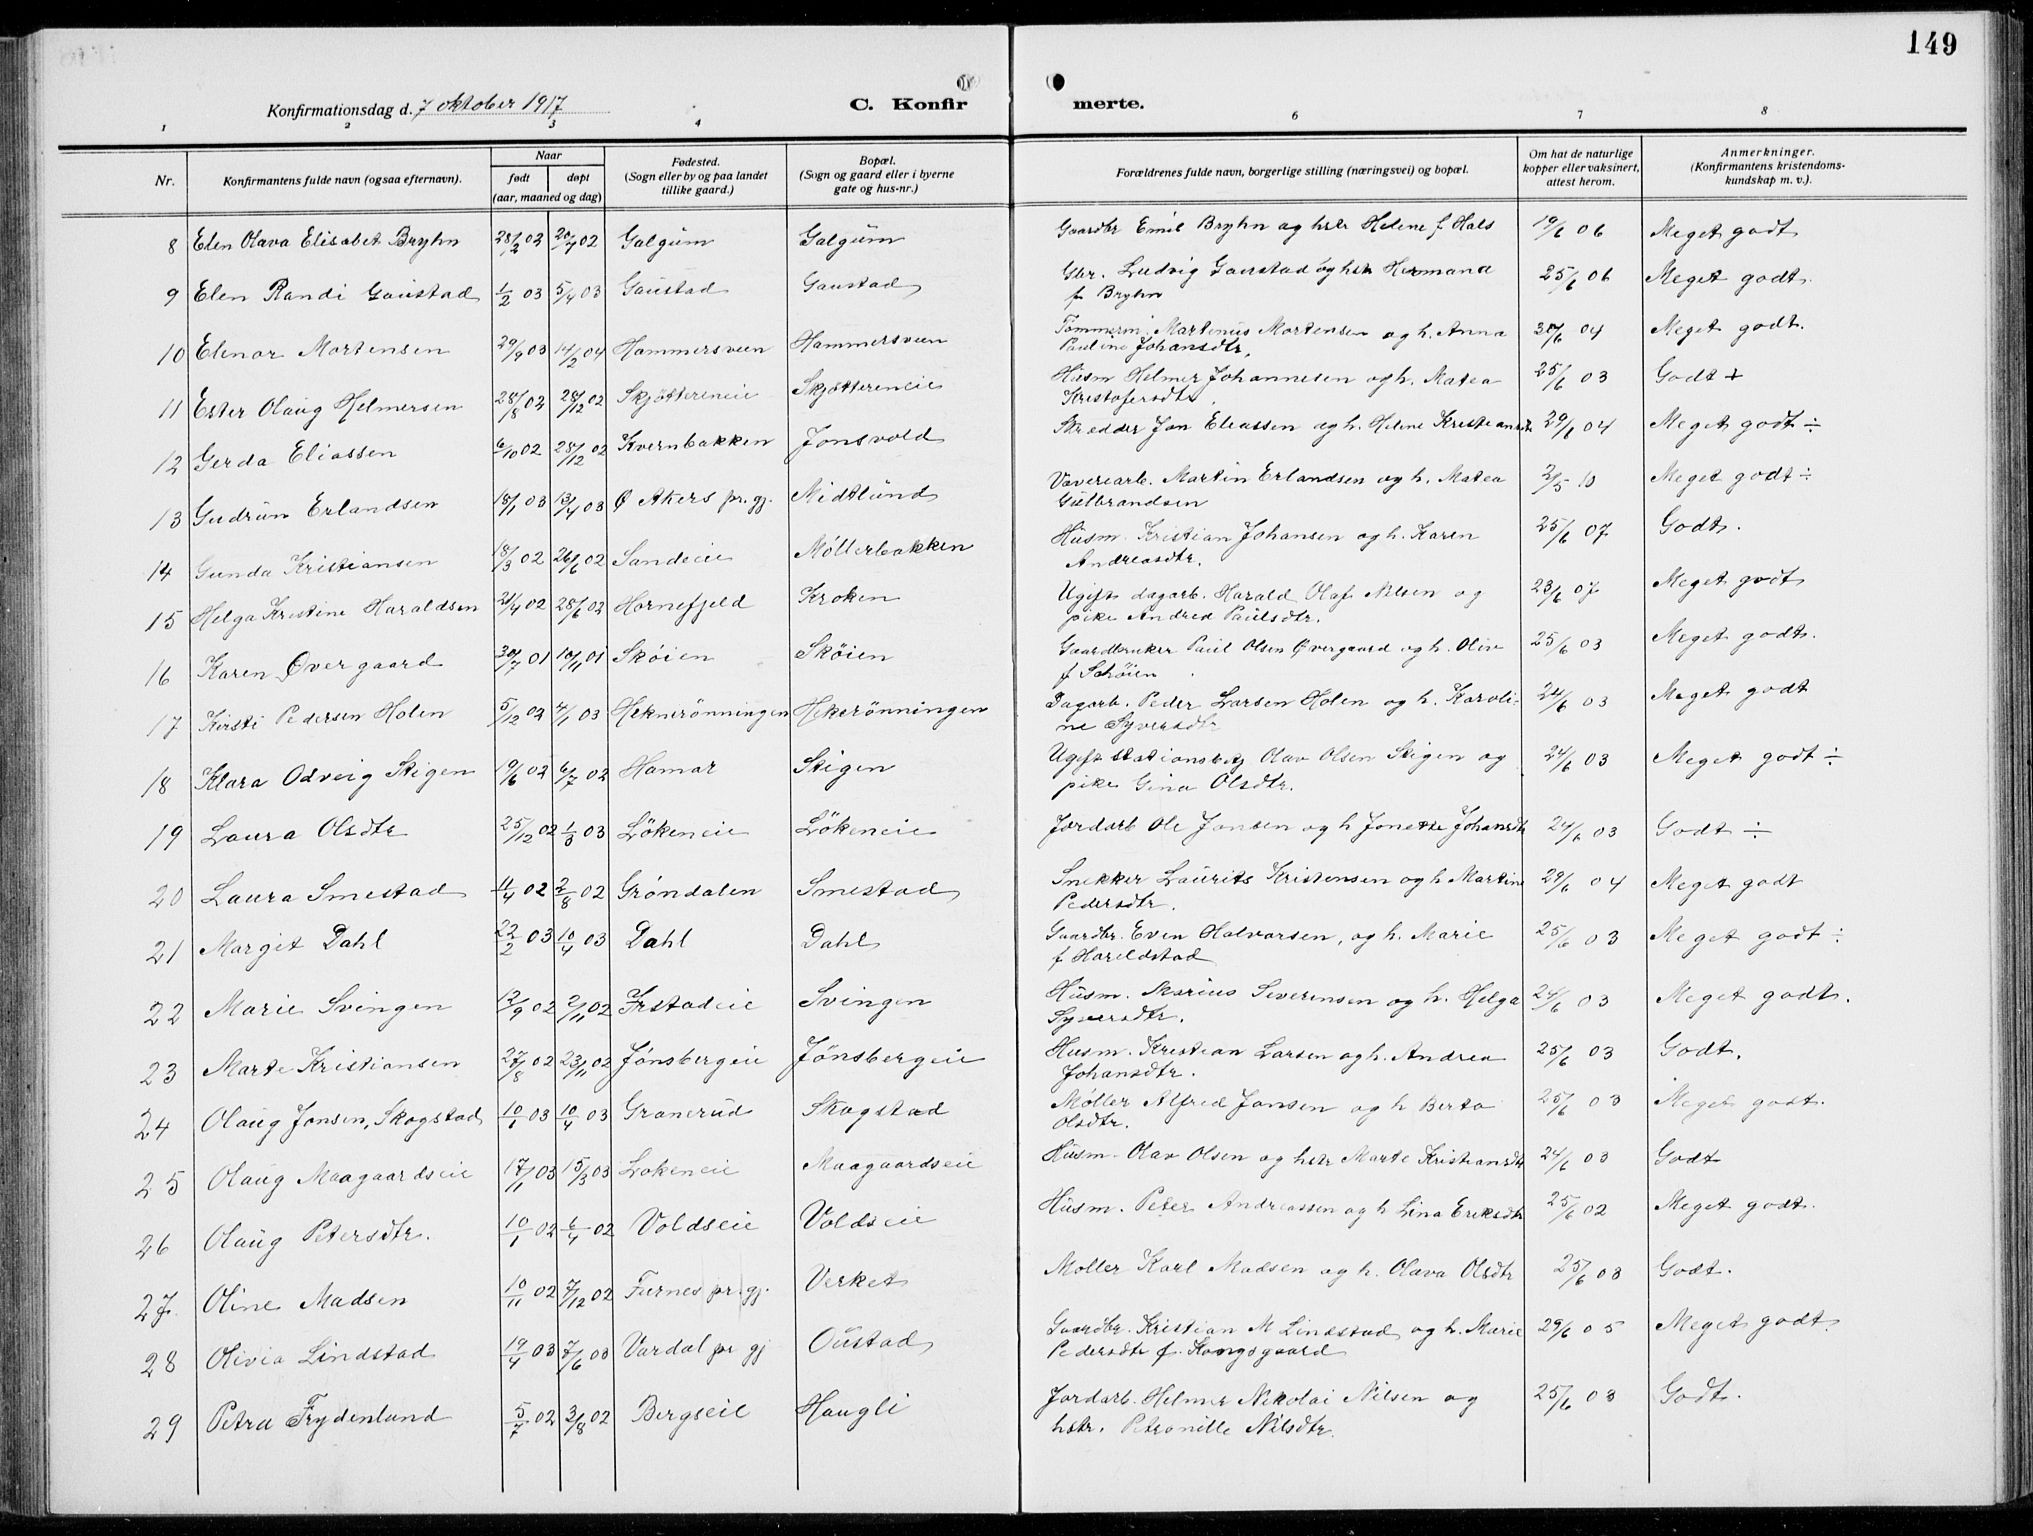 149
Konfirmationsdag d. 7 oktober 1917
C. Konfir merte.
1 2 3 4 6 7 8
Nr. Konfirmantens fulde navn (ogsaa efternavn). Naar født døpt (aar, maaned og dag) Fødested. (Sogn eller by og paa landet tillike gaard.) Bopæl. (Sogn og gaard eller i byerne gate og hus-nr.) Forældrenes fulde navn, borgerlige stilling (næringsvei) og bopæl. Om hat de naturlige kopper eller vaksinert, attest herom. Anmerkninger. (Konfirmantens kristendoms-kundskap m. v.).
8 Elen Olava Elisabet Bryhn 28/2 02 20/4 02 Galgum Galgum Gaardbr Emil Bryhn og hstr Helene f Hals 19/6 06 Meget godt
9 Elen Randi Gaustad 1/2 03 5/4 03 Gaustad Gaustad Gbr. Ludvig Gaustad og hstr Hermana 25/6 06 Meget godt.
f Bryhn
10 Elenor Mortensen 29/9 03 14/2 04 Hammersveen Hammersveen Tømmerm. Martenus Mortensen og h. Anna 04 Meget godt.
Pauline Johansdtr.
11 Ester Olaug Helmersen 28/8 02 28/12 02 Skjøttereneie Skjøttereneie Husm Helmer Johannesen og h. Matea 25/6 03 Godt +
Kristofersdtr.
12 Gerda Eliassen 6/10 02 28/12 02 Kvernbakken Jonsvold Skredder Jon Eliassen og h. Helene Kristiansdtr 29/6 04 Meget godt ÷
13 Gudrun Erlandsen 18/1 03 13/4 03 Ø Akers pr. gj. Midtlund Væverearb. Martin Erlandsen og h. Matea 2/5 10 Meget godt ÷
Gulbrandsen
14 Gunda Kristiansen 18/3 02 26/6 02 Sandeeie Møllerbakken Husm. Kristian Johansen og h. Karen 25/6 07 Godt.
Andreasdtr.
15 Helga Kristine Haraldsen 21/4 02 28/6 02 Hornefjeld Kroken Ugift dagarb. Harald Olaf Nilsen og 23/6 07 Meget godt
pike Andrea Paulsdtr.
16 Karen Overgaard 30/7 01 10/11 01 Skøien Skøien Gaardbruker Paul Olsen Overgaard og h. Oline 25/6 03 Meget godt.
f Schøien
17 Kirsti Pedersen Holen 5/12 02 4/1 03 Heknerönningen Hekerönningen Dagarb. Peder Larsen Holen og h. Karoli- 24/6 03 Meget godt
ne Syversdtr
18 Klara Odveig Stigen 19/6 02 6/7 02 Hamar Stigen Ugift stationsbetj Olav Olsen Stigen og 24/6 03 Meget godt ÷
pike Gina Olsdtr.
19 Laura Olsdtr 25/12 02 1/3 03 Lökeneie Lökeneie Jordarb Ole Jonsen og h Jonette Johansdtr 24/6 03 Godt ÷
20 Laura Smestad 11/4 02 3/8 02 Grøndalen Smestad Snekker Laurits Kristensen og h Martine 29/6 04 Meget godt
Pedersdtr.
21 Margit Dahl 22/2 03 10/4 03 Dahl Dahl Gaardbr. Even Halvorsen, og h. Marie 25/6 03 Meget godt ÷
f Hareldstad
22 Marie Svingen 12/9 02 2/11 02 Frstadeie Svingen Husm. Marius Severensen og h. Helga 24/6 03 Meget godt.
Syversdtr.
23 Marte Kristiansen 27/8 02 23/11 02 Jønsbergeie Jønsbergeie Husm. Kristian Larsen og h. Andrea 25/6 03 Godt.
Johansdtr.
24 Olaug Jonsen, Skogstad 10/1 03 10/4 03 Granerud Skogstad Møller Alfred Jonsen og h Berta 25/6 03 Meget godt.
Olsdtr.
25 Olaug Maagaardseie 17/11 03 15/3 03 Lokeneie Maagaardseie Husm. Olav Olsen og hstr Marte Kristiansdtr 24/6 03 Godt
26 Olaug Petersdtr. 10/1 02 6/4 02 Voldseie Voldseie Husm. Peter Andreassen og h Lina Eriksdtr 25/6 02 Meget godt.
27 Oline Madsen 10/11 02 7/12 02 Furnes pr. gj. Verket Møller Karl Madsen og h. Olava Olsdtr 25/6 03 Godt.
28 Olivia Lindstad 19/4 03 7/6 03 Vardal pr gj Oustad Gaardbr. Kristian M Lindstad og h. Marie 29/6 05 Meget godt.
Pedersdtr f. Kongsgaard
29 Petra Frydenlund 5/7 02 3/8 02 Bergseie Haugli Jordarb. Helmer Nikolai Nilsen og 25/6 03 Godt.
hstr. Petronille Nilsdtr.